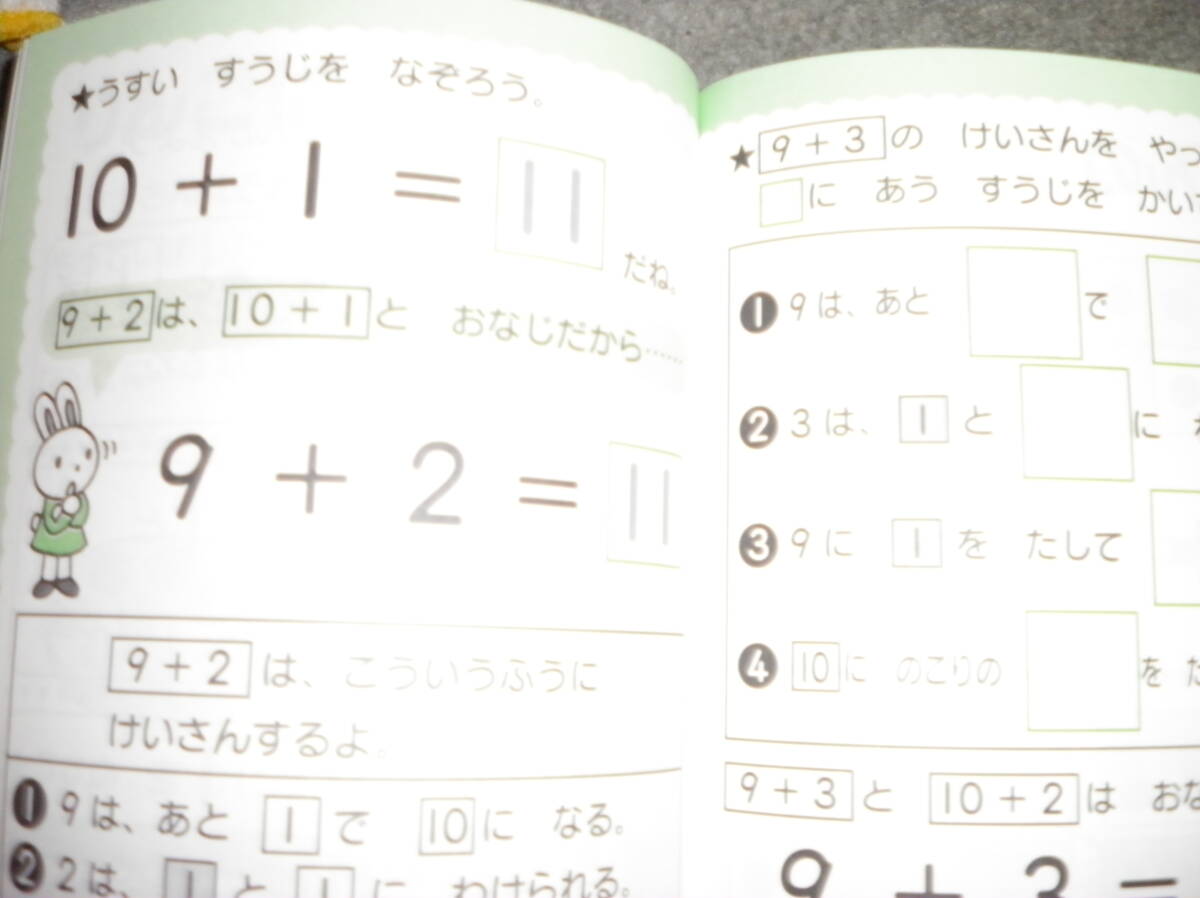 ★うすい すうじを なぞろう。
10 + 1 = 11
だね。
9+2は、10+1と おなじだから……
9 + 2 = 11
9+2は、こういうふうに
けいさんするよ。
❶9は、あと 1で 10に なる。
❷2は、1と 1に わけられる。
★9+3の けいさんを やっ
□に あう すうじを かい
❶9は、あと □で
❷3は、1と □に
❸9に 1を たして
❹10に のこりの □を た
9+3と 10+2は おな
9 + 3 =